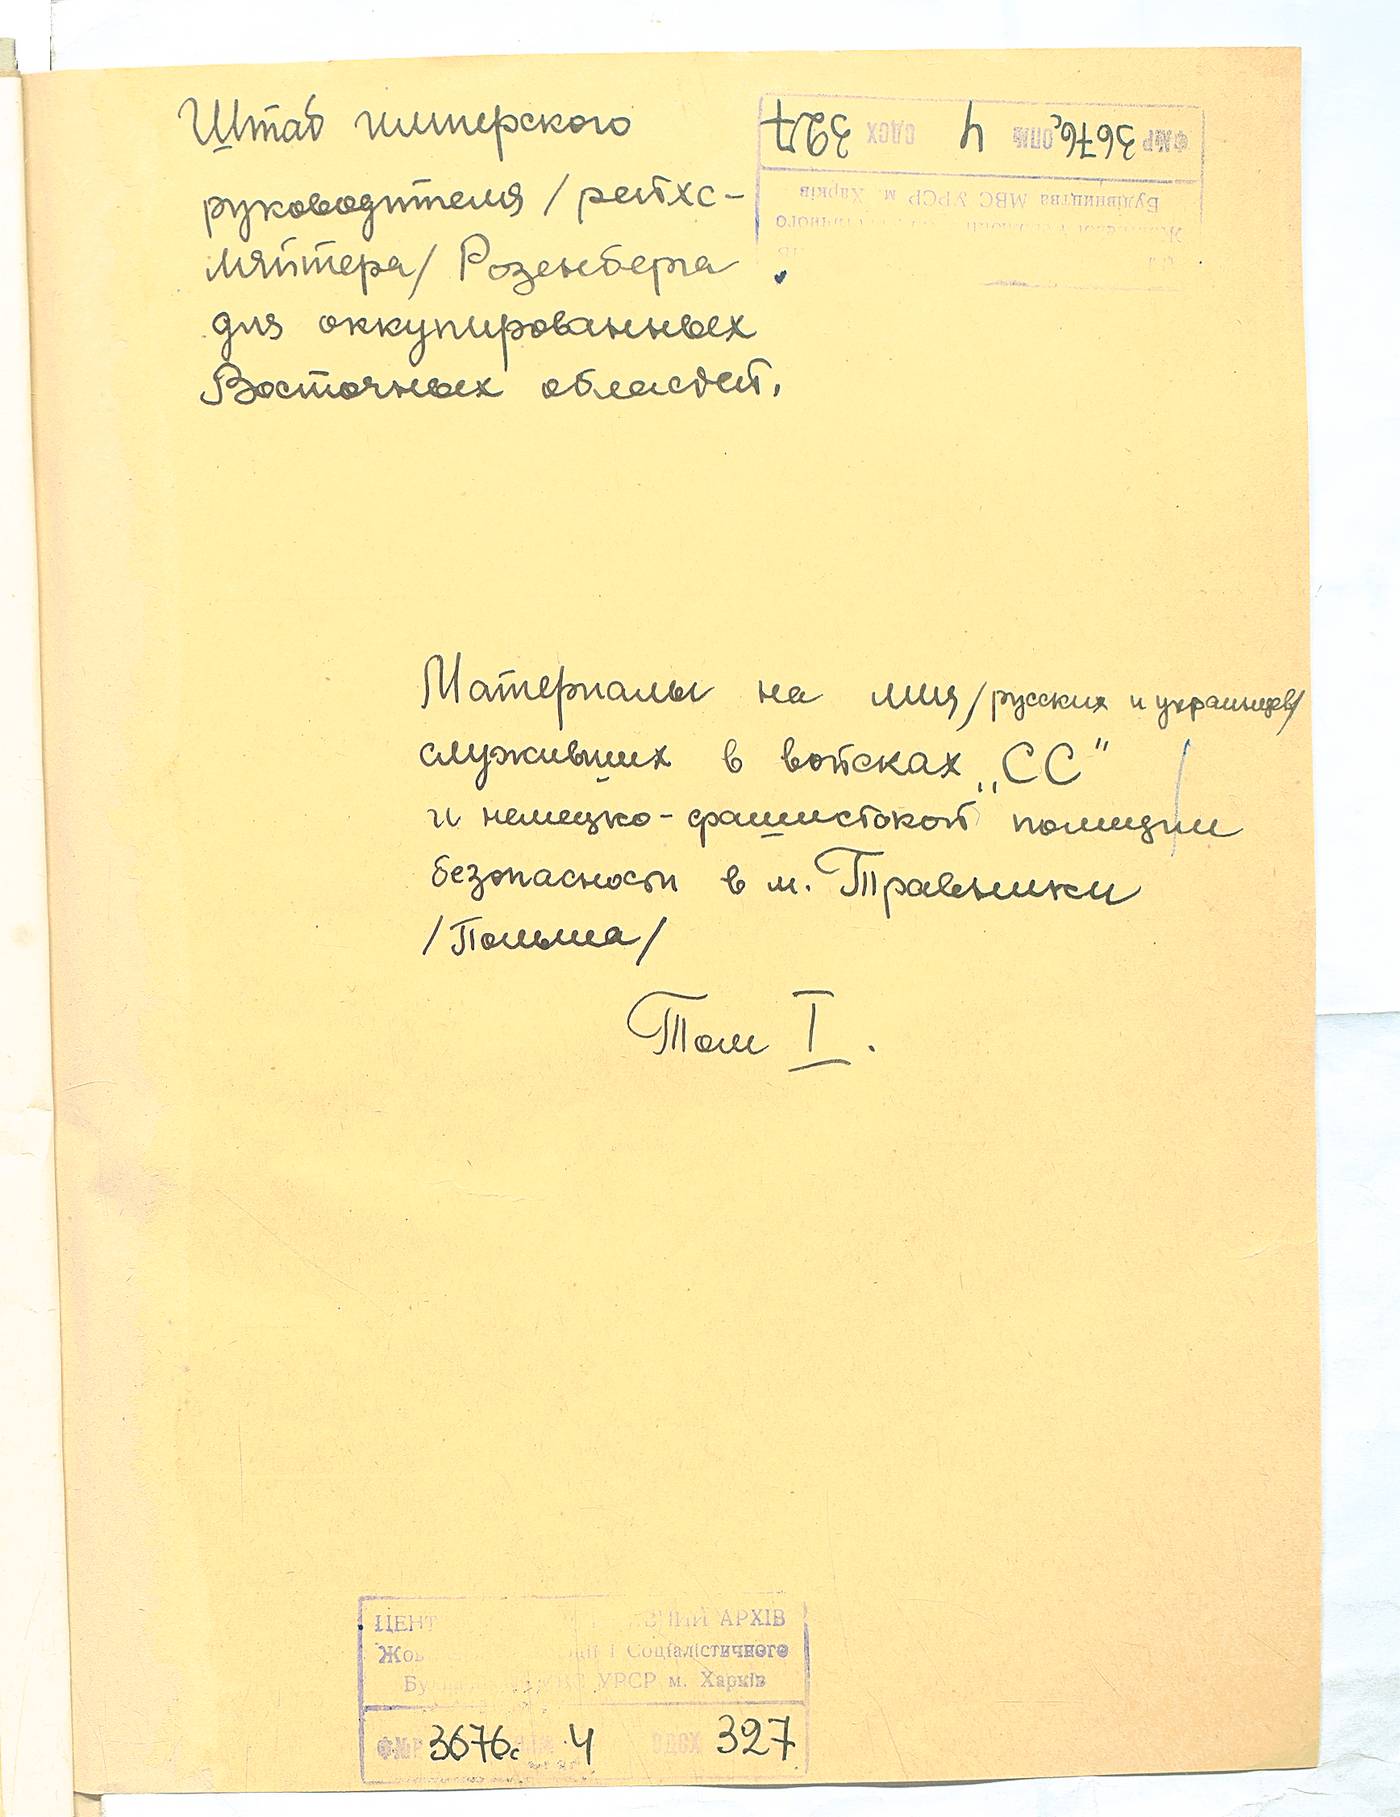 Штаб имперского
руководителя /рейхс-
ляйтера/ Розенберга
для оккупированных
Восточных областей.
ФМР 3676с ОПМ 4 ОДСХ 327
Будівництва МВС УРСР м. Харків
Материалы на лиц /русских и украинцев/
служивших в войсках „СС"
и немецко-фашистской полиции
безопасности в м. Травники
/Польша/
Том I.
АРХІВ
і Соціалістичного
УРСР м. Харків
ФМР 3676с 4 ОДСХ 327